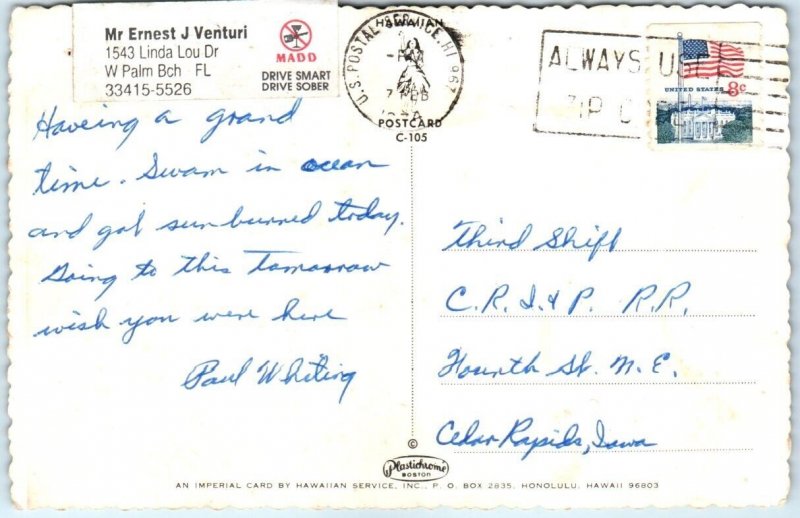 Mr Ernest J Venturi
1543 Linda Lou Dr
W Palm Bch FL
33415-5526
MADD
DRIVE SMART
DRIVE SOBER
HAWAIIAN
U.S. POSTAL SERVICE, HI 967
PM
7 FEB
POSTCARD
C-105
ALWAYS USE
ZIP CODE
UNITED STATES 8c
Haveing a grand
time. Swam in ocean
and got sunburned today.
Going to this tomorrow
wish you were here
Paul Whiting
Third Shift
C.R.I.&P. R.R.
Fourth St. N.E.
Cedar Rapids, Iowa
©
Plastichrome
BOSTON
AN IMPERIAL CARD BY HAWAIIAN SERVICE, INC., P. O. BOX 2835, HONOLULU, HAWAII 96803